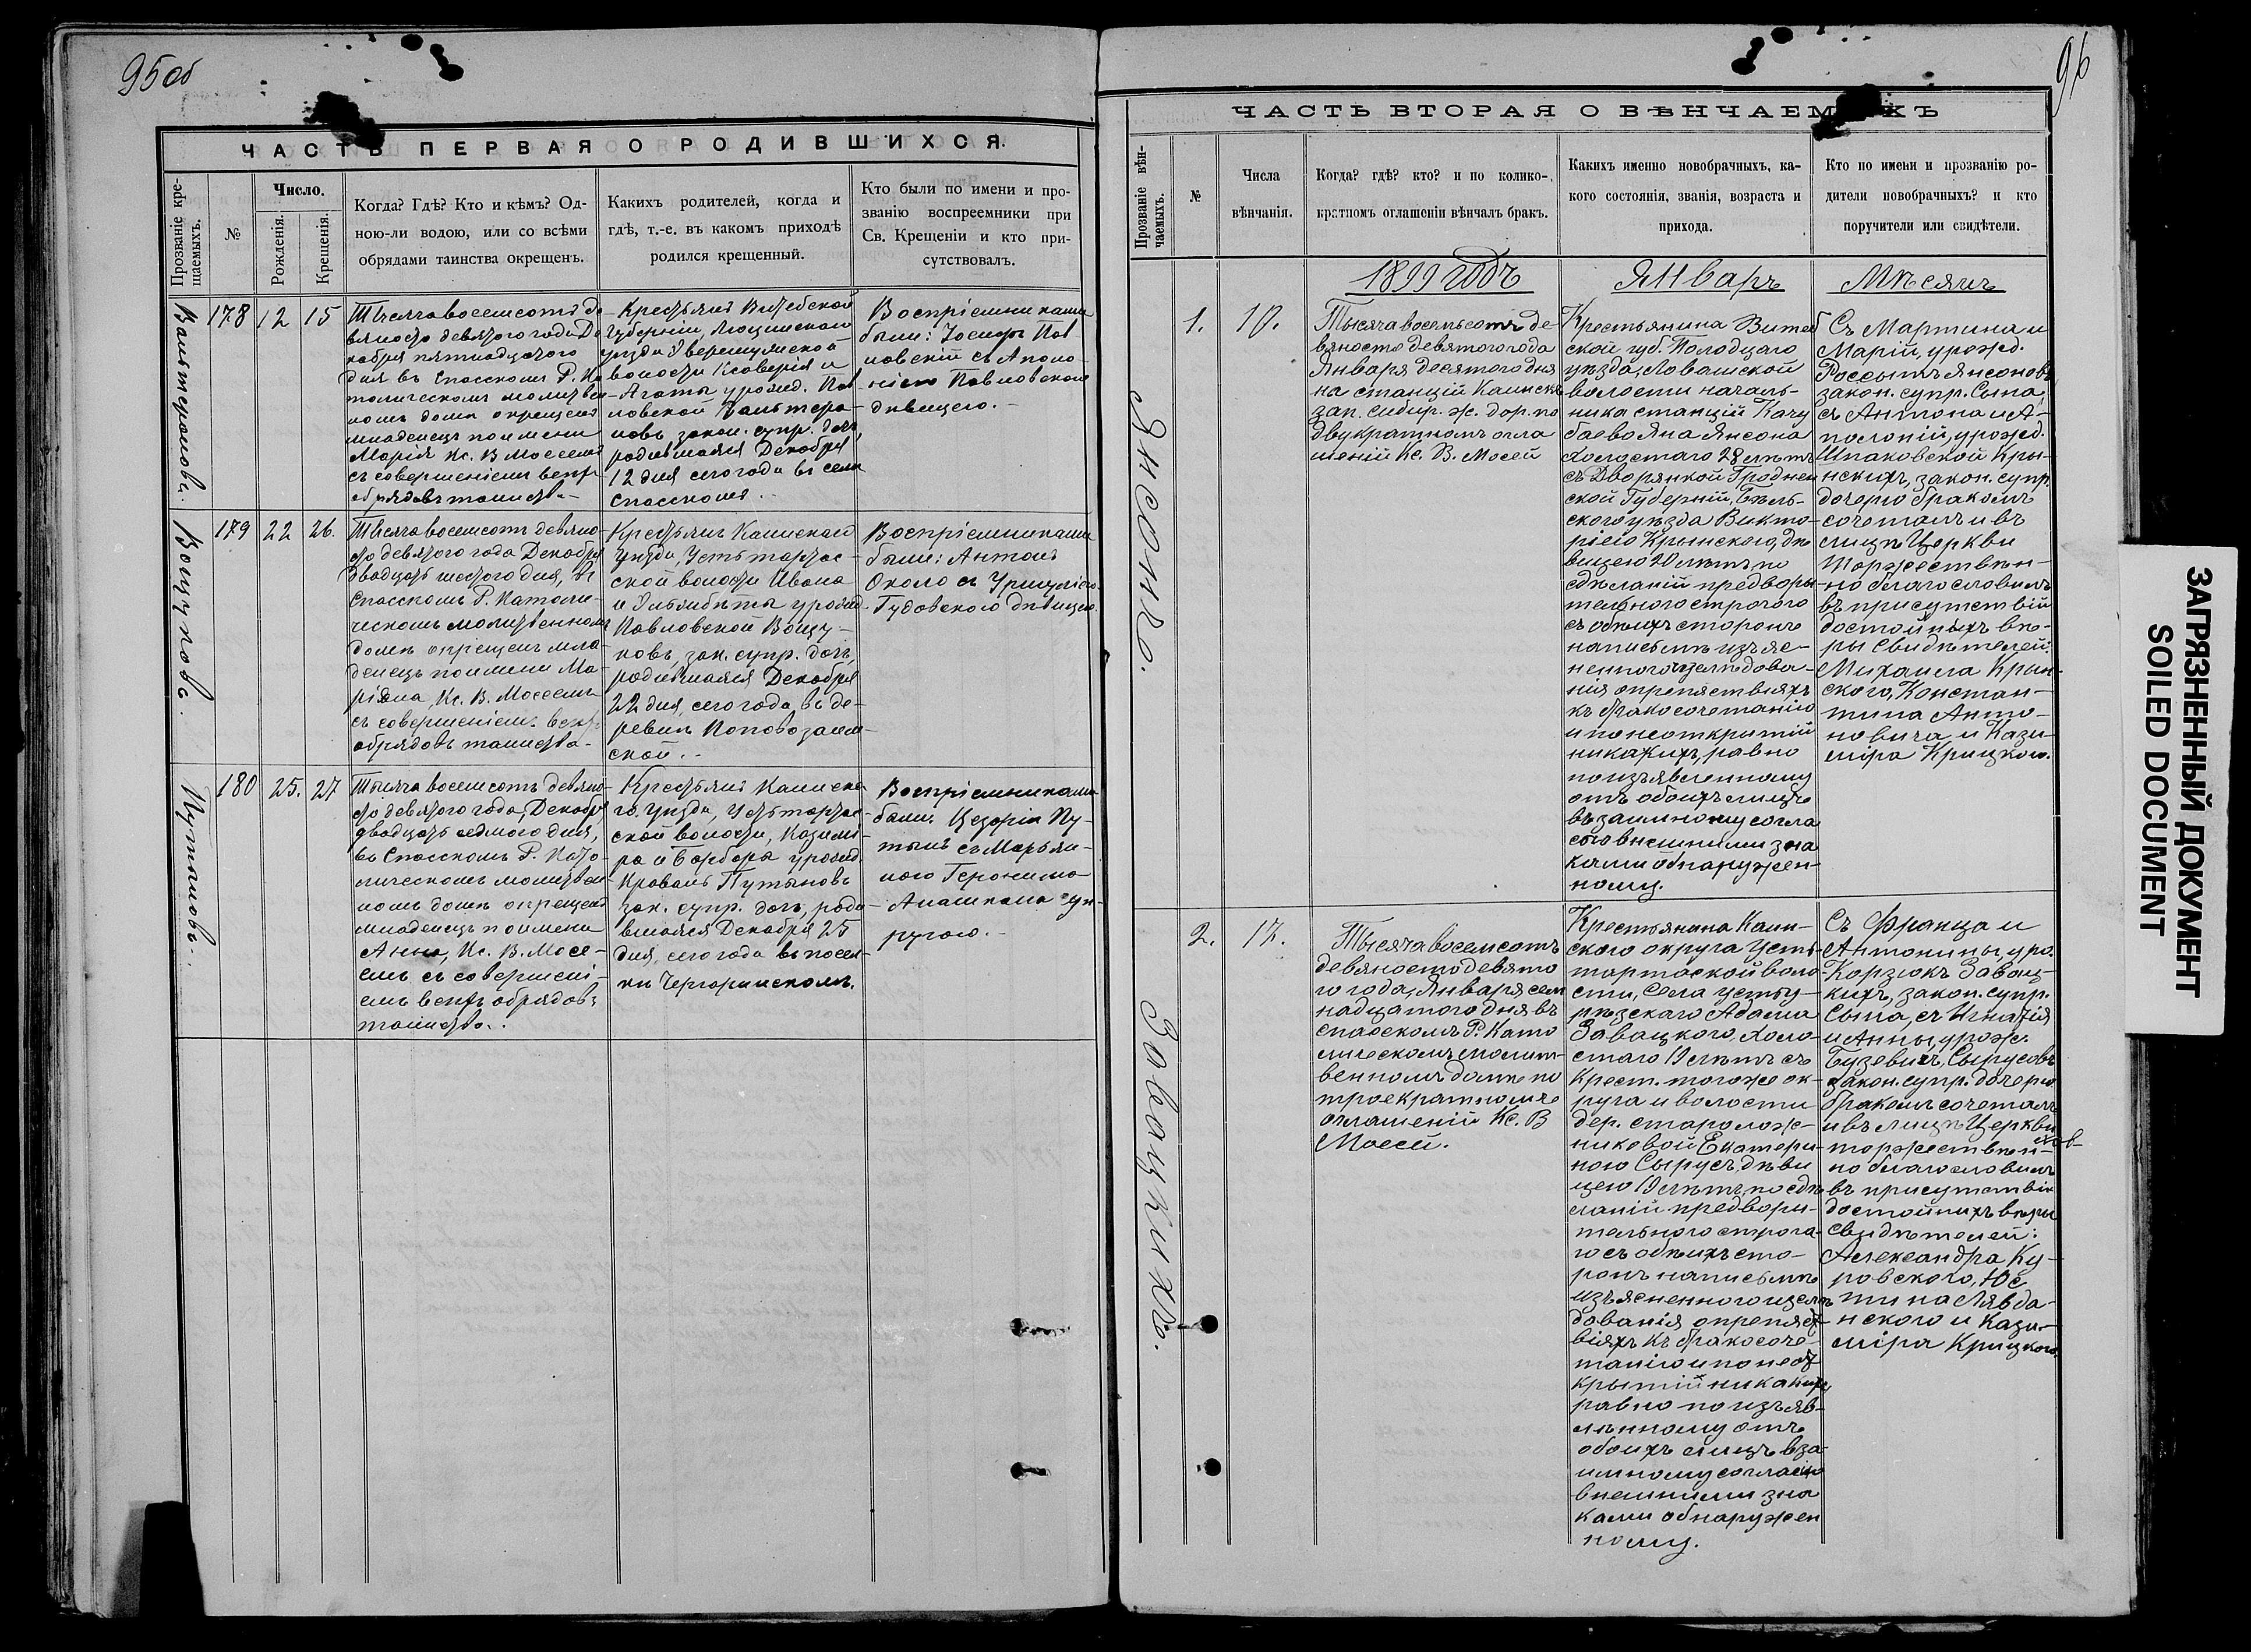 95 об
ЧАСТЬ ПЕРВАЯ О РОДИВШИХСЯ.
Прозваніе кре-
щаемыхъ.
№
Число.
Рожденія.
Крещенія.
Когда? Гдѣ? Кто и кѣмъ? Од-
ною-ли водою, или со всѣми
обрядами таинства окрещенъ.
Какихъ родителей, когда и
гдѣ, т.-е. въ какомъ приходѣ
родился крещенный.
Кто были по имени и про-
званію воспреемники при
Св. Крещеніи и кто при-
сутствовалъ.
Вальтеронова.
178
12
15
Тысяча восемсотъ де
вяносто девятого года Де
кабря пятнадцатого
дня въ Спасскомъ Р. Ка
толическомъ молитвен
номъ домѣ окрещенъ
младенецъ по имени
Марія Кс. В. Моссемъ
съ совершеніемъ всѣхъ
обрядовъ таинства.-
Крестьянъ Витебской
Губерніи, Люцинскаго
уѣзда
волости Ксаверія и
Агаты урожд. Пав
ловской
новъ закон. супр. дочь,
родившаяся Декабря
12 дня сего года въ селѣ
Спасскомъ.-
Воспріемниками
были: Іосифъ Пав
ловскій съ Аполо-
ніею Павловскою
дѣвицею.-
Воицунова.
179
22
26.
Тысяча восемсотъ девяно-
сто девятого года Декабря
двадцать шестого дня, въ
Спасскомъ Р. Католи-
ческомъ молитвенномъ
домѣ окрещенъ мла-
денецъ по имени Ма-
ріяна, Кс. В. Моссемъ
съ совершеніемъ всѣхъ
обрядовъ таинства.-
Крестьянъ Каинскаго
уѣзда, Устьтартас-
ской волости Ивана
и Эльжбѣты урожд.
Павловской Воицу-
новъ, зак. супр. дочь,
родившаяся Декабря
22 дня, сего года, въ де-
ревнѣ Поповозаем-
ской.-
Воспріемниками
были: Антонъ
Около съ Уршулею
Гудовскою дѣвицею.
Путыновъ.
180
25.
27
Тысяча восемсотъ девяно-
сто девятого года, Декабря
двадцать седмого дня,
въ Спасскомъ Р. Като-
лическомъ молитвен
номъ домѣ окрещенъ
младенецъ по имени
Анна, Кс. В. Мосе-
емъ съ совершені-
емъ всѣхъ обрядовъ
таинства.-
Крестьянъ Каинска
го уѣзда, Устьтартас-
ской волости, Казими-
ра и Барбары урожд.
Кроваль Путыновъ
зак. супр. дочь, роди-
вшаяся Декабря 25
дня, сего года въ посел-
кѣ
Воспріемниками
были. Цезарій Пу-
тынъ съ Марьян-
ною Геронима
суп-
ругою.-
96
ЧАСТЬ ВТОРАЯ О ВѢНЧАЕМЫХЪ
Прозваніе вѣн-
чаемыхъ.
№
Числа
вѣнчанія.
Когда? гдѣ? кто? и по колико-
кратномъ оглашеніи вѣнчалъ бракъ.
Какихъ именно новобрачныхъ, ка-
кого состоянія, званія, возраста и
прихода.
Кто по имени и прозванію ро-
дители новобрачныхъ? и кто
поручители или свидѣтели.
1899 годъ
Январь
Мѣсяцъ
Янсонъ.
1.
10.
Тысяча восемьсотъ де-
вяносто девятого года
Января десятого дня
на станціи Каинскъ
зап. сибир. ж. дор. по
двукратномъ огла
шеніи Кс. В. Мосей
Крестьянина Витеб
ской губ. Полоцкаго
уѣзда, Ловашской
волости началь-
ника станціи Качу
баево Яна Янсона
холостаго 28 лѣтъ
съ Дворянкой Гроднен
ской Губерніи, Бѣль-
скаго уѣзда Викто-
ріею Крынскою, дѣ
вицею 20 лѣтъ, по
сдѣланіи предвари-
тельного строгого
съ обѣихъ сторонъ
написьмѣ изъяс-
ненного изслѣдова-
нія о препятствіяхъ
къ бракосочетанію
и по неоткрытіи
никакихъ, равно
по изъявленному
отъ обоихъ лицъ
взаимному согла
сію внѣшними зна
ками обнаружен-
ному.
Съ Мартина и
Маріи, урожд.
Россытъ Янсоновъ
закон. супр. Сына,
съ Антона и А-
полоніи, урожд.
Шпаковской Кры-
нскихъ, закон. супр.
дочерю бракомъ
сочеталъ и въ
лицѣ Церкви
Торжествен-
но благословилъ
въ присутствіи
достойныхъ вѣ-
ры Свидѣтелей:
Михаила Крын-
ского, Констан-
тина Анто-
новича и Кази-
міра Крицкого.
Завацкихъ.
2.
17.
Тысяча восемсотъ
девяносто девято
го года, Января сем
надцатого дня въ
Спасскомъ Р. Като
лическомъ молит-
венномъ домѣ по
троекратномъ
оглашеніи Кс. В
Мосей.
Крестьянина Каин-
ского округа Усть-
тартаской воло
сти, Села Усть-
рѣзскаго Адама
Завацкого, холо-
стаго 19 лѣтъ съ
Крест. того же ок-
руга и волости
дер. Староложе-
никовой Екатери-
ною Сырусъ, дѣви
цею 19 лѣтъ, по сдѣ
ланіи предвари-
тельного строга-
го съ обѣихъ сто-
ронъ написьмѣ
изъясненного изслѣ
дованія о препят
віяхъ къ бракосоче-
танію и по неот
крытіи никакихъ,
равно по изъяв-
лѣнному отъ
обоихъ лицъ вза-
имному согласію
внешними зна
ками обнаружен
ному.
Съ Франца и
Антонины, уро.
Корзюкъ Завац-
кихъ, закон. супр.
Сына, съ Игнатія
и Анны, урож.
Бузевичъ, Сырусовъ
закон. супр. дочерю
бракомъ сочеталъ
и въ лицѣ Церкви
торжествен-
но благословилъ
въ присутствіи
достойныхъ вѣры
свидѣтелей:
Александра Ку-
ровского, Юс
тина Лявда-
нского и Кази-
міра Крицкого.
ЗАГРЯЗНЕННЫЙ ДОКУМЕНТ
SOILED DOCUMENT